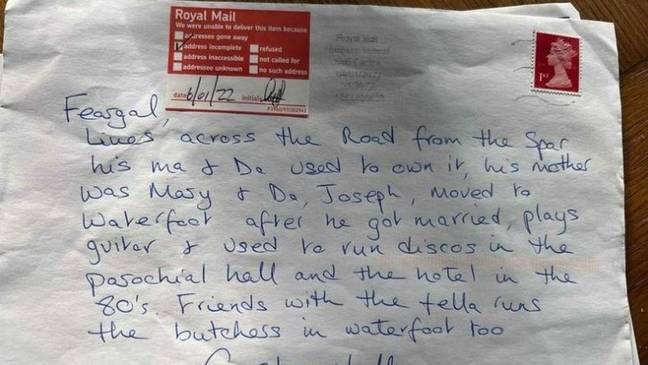 Royal Mail
We were unable to deliver this item because
addressee gone away
address incomplete
refused
address inaccessible
not called for
addressee unknown
no such address
date 6/01/22 initials
Royal Mail
1st
Feargal,
Lives across the Road from the Spar
his ma & Da used to own it, his mother
was Mary & Da, Joseph, moved to
Waterfoot after he got married, plays
guitar & used to run discos in the
parochial hall and the hotel in the
80's. Friends with the fella runs
the butchers in waterfoot too